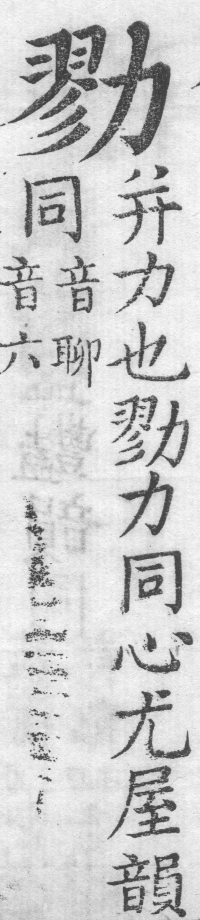 勠
并力也勠力同心尤屋韻
同
音聊
音六